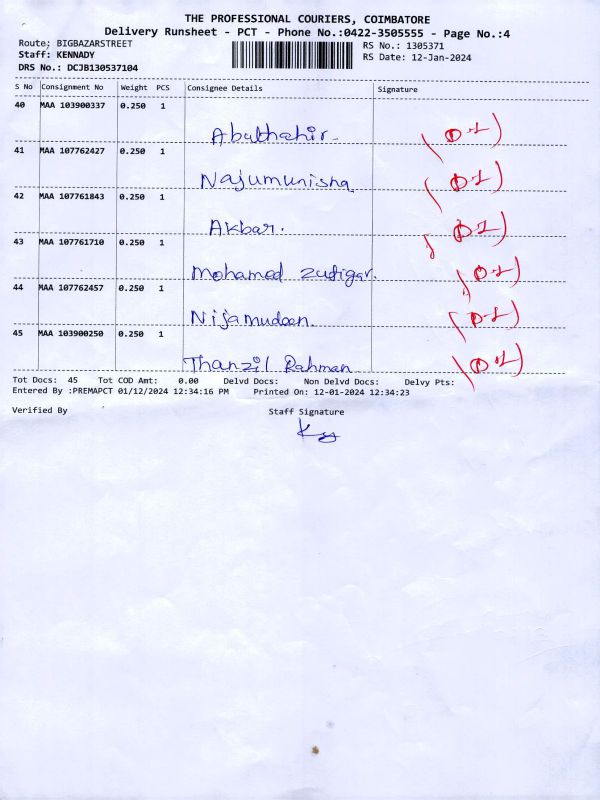 THE PROFESSIONAL COURIERS, COIMBATORE
Delivery Runsheet - PCT - Phone No.:0422-3505555 - Page No.:4
Route: BIGBAZARSTREET RS No.: 1305371
Staff: KENNADY RS Date: 12-Jan-2024
DRS No.: DCJB130537104
S No Consignment No Weight PCS Consignee Details Signature
40 MAA 103900337 0.250 1
Abuthahir
41 MAA 107762427 0.250 1
Najumunisha
42 MAA 107761843 0.250 1
Akbar.
43 MAA 107761710 0.250 1
Mohamed Zufigar.
44 MAA 107762457 0.250 1
Nijamudeen.
45 MAA 103900250 0.250 1
Thanzil Rahman
Tot Docs: 45 Tot COD Amt: 0.00 Delvd Docs: Non Delvd Docs: Delvy Pts:
Entered By :PREMAPCT 01/12/2024 12:34:16 PM Printed On: 12-01-2024 12:34:23
Verified By Staff Signature